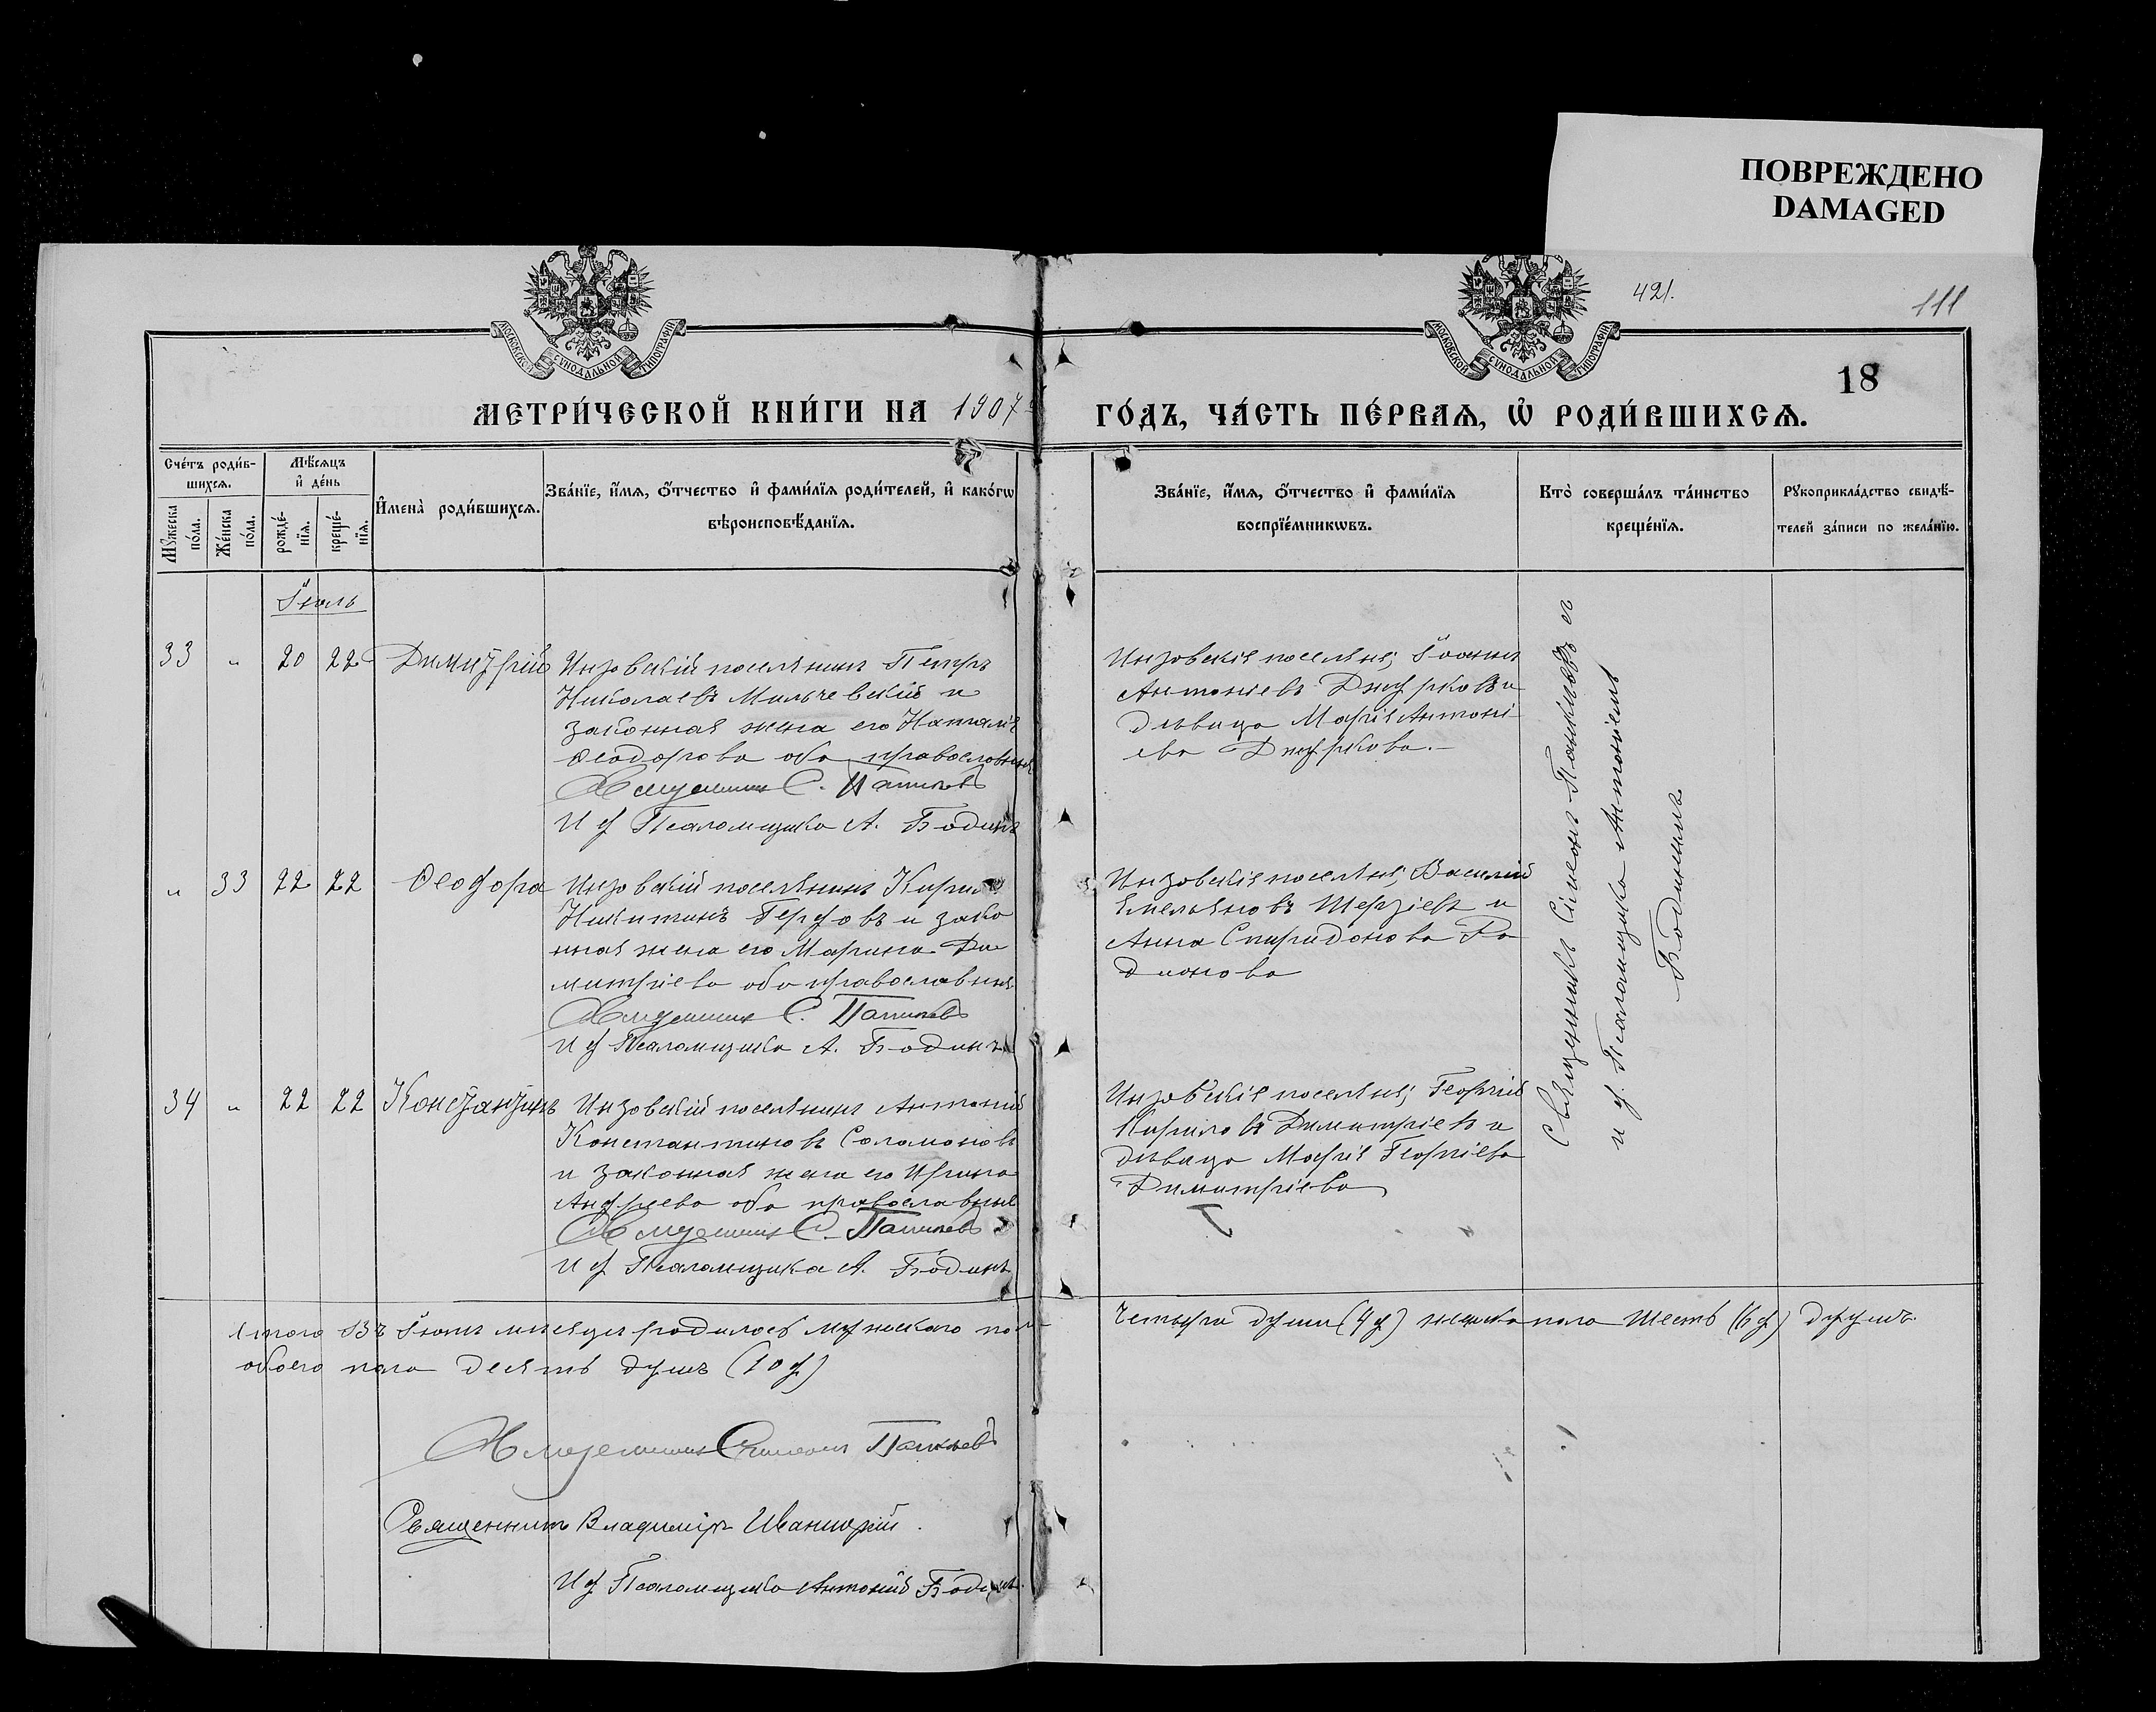 ПОВРЕЖДЕНО
DAMAGED
421.
111
18
МОСКОВСКОЙ СѴНОДАЛЬНОЙ ТИПОГРАФІИ
МОСКОВСКОЙ СѴНОДАЛЬНОЙ ТИПОГРАФІИ
МЕТРИ́ЧЕСКОЙ КНИ́ГИ НА 1907 ГО́ДЪ, ЧА́СТЬ ПЕ́РВАѦ, Ѡ҆ РОДИ́ВШИХСѦ.
Сче́тъ роди́в-
шихсѧ.
Мꙋ́жеска по́ла.
Же́нска по́ла.
Мѣ́сѧцъ
и҆ де́нь
рожде́-
нїѧ.
креще́-
нїѧ.
И҆мена̀ роди́вшихсѧ.
Зва́нїе, и҆́мѧ, ѻ҆́тчество и҆ фами́лїѧ роди́телей, и҆ како́гѡ
вѣроисповѣ́данїѧ.
Зва́нїе, и҆́мѧ, ѻ҆́тчество и҆ фами́лїѧ
воспрїе́мникѡвъ.
Кто̀ соверша́лъ та́инство
креще́нїѧ.
Рꙋкоприкла́дство свидѣ́-
телей за́писи по жела́нїю.
Іюль
33 " 20 22 Димитрій
Инзовскій поселянинъ Петръ
Николаевъ Мильчевскій и
законная жена его Наталія
Ѳеодорова оба православные
Священникъ С. Паничевъ
И д Псаломщика А. Бодинъ
Инзовскія поселяне; Іоаннъ
Антоніевъ Дмурковъ и
дѣвица Марія Антоні-
ева Дмуркова.
" 33 22 22 Ѳеодора
Инзовскій поселянинъ Кирилъ
Никитинъ Герговъ и зако
нная жена его Марина Ди
митріева оба православные
Священникъ С. Паничевъ
И д Псаломщика А. Бодинъ
Инзовскія поселяне; Василій
Емельяновъ Шерзіевъ и
Анна Спиридонова Ра
дионова
34 " 22 22 Константинъ
Инзовскій поселянинъ Антоній
Константиновъ Соломоновъ
и законная жена его Ирина
Андреева оба православные
Священникъ С. Паничевъ
И д Псаломщика А. Бодинъ
Инзовскія поселяне; Георгій
Кириловъ Димитріевъ и
дѣвица Марія Георгіева
Димитріева
Священникъ Симеонъ Паничевъ съ
и д. Псаломщика Антоніемъ
Бодинымъ
Итого въ Іюлѣ мѣсяцѣ родилось мужескаго пола четыре души (4 д) женска пола шесть (6 д) душъ.
обоего пола десять душъ (10 д)
Священникъ Симеонъ Паничевъ
Священникъ Владиміръ Иваницкій.
И д Псаломщика Антоній Бодинъ